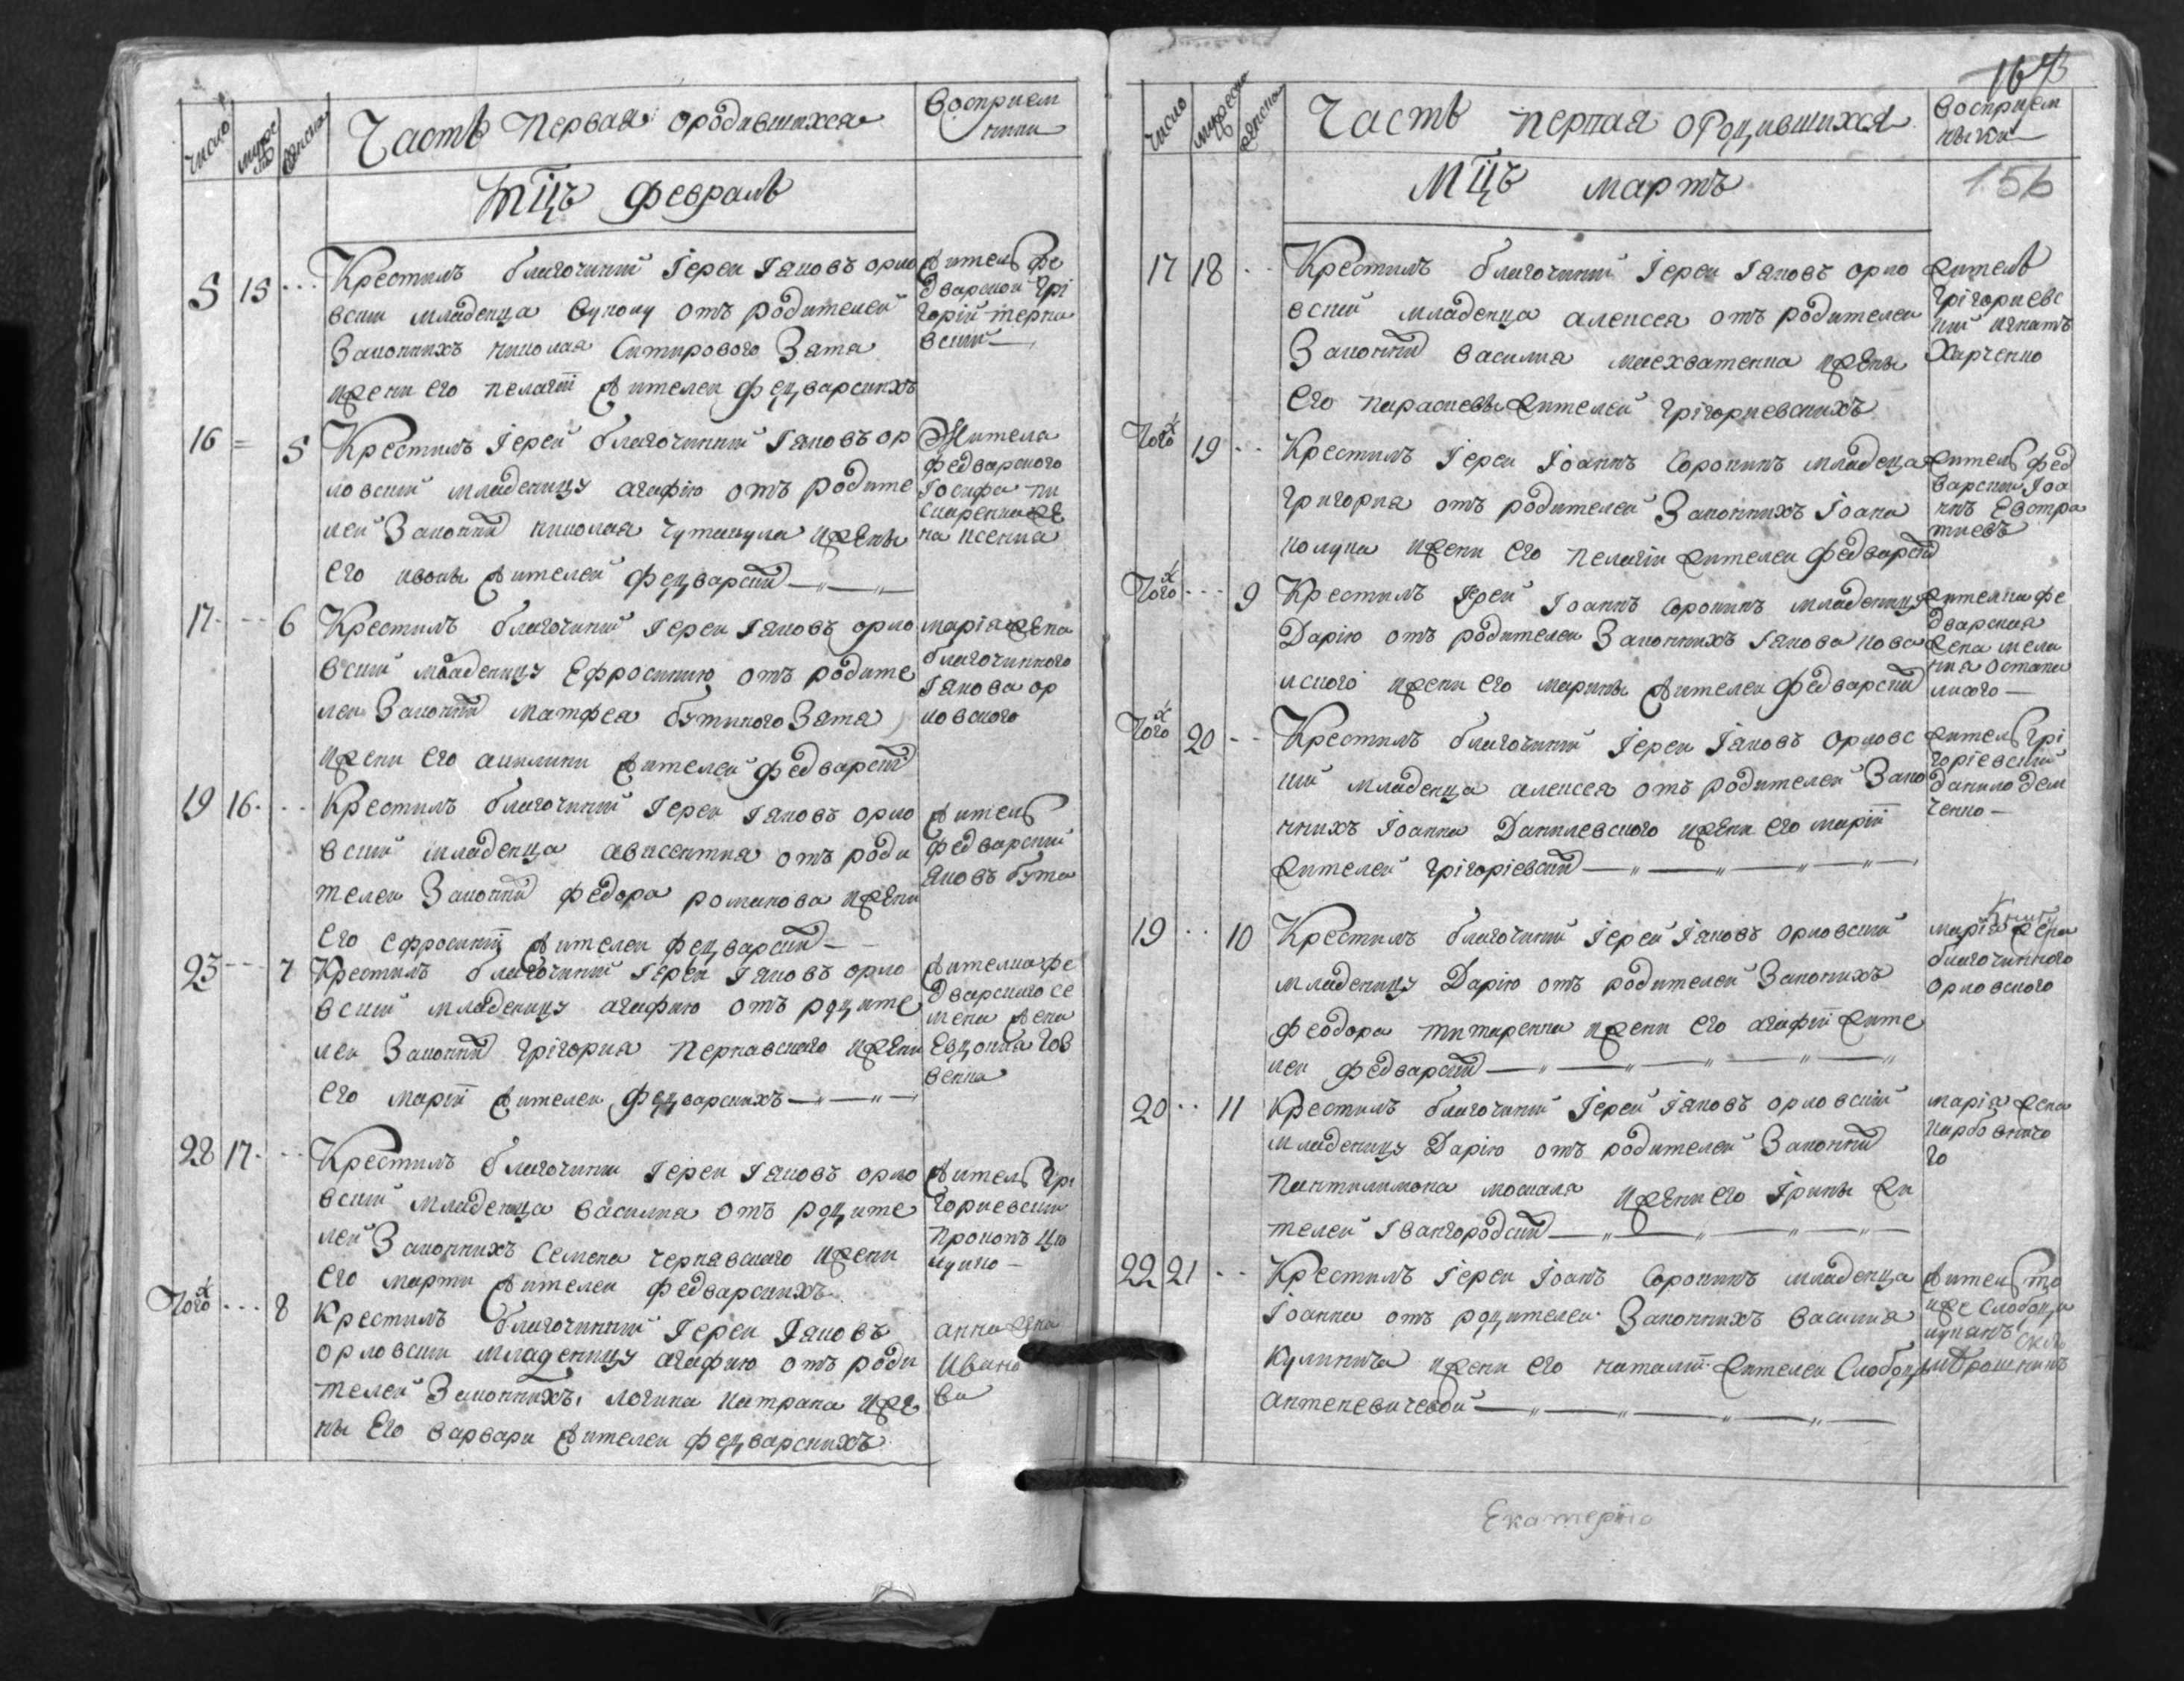 число мужеска женска
Часть Первая ородившихся
Восприем
ники
Мцъ февраль
5 15
Крестилъ благочинний Іереи Іаковъ орло
вскии младенца Вуколу отъ родителей
Законнихъ николая Ситнирового Зятя
ижени его пелагіи жителеи федварскихъ
житель фе
дварской Грі
горій терня
вский
16 5
Крестилъ Іерей благочинний Іаковъ ор
ловский младеницу агафию отъ родите
лей Законнй николая чутикула ижены
его ивоны жителей федварскй
Жителя
федварского
Іосифа пи
скаренка же
на ксения
17 6
Крестилъ благочинний Іереи Іаковъ орло
вский младеницу Ефросинию отъ родите
леи Законнй матфея бутикого Зятя
ижени его акилини жителей федварскй
марія жена
благочинного
Іакова ор
ловского
19 16
Крестилъ благочинний Іереи Іаковъ орло
вский младенца авксентия отъ роди
телеи Законнй федора романова ижени
его ефросиніи жителеи федварскй
житель
федварский
Яковъ бута
23 7
Крестилъ благочинний Іереи Іаковъ орло
вский младеницу агафию отъ родите
леи Законнй Григория Чернавского ижени
его маріи жителеи федварскихъ
жителка фе
дварского се
мена жена
Евдокия Гов
венка
28 17
Крестилъ благочинни Іереи Іаковъ орло
вский младенца василия отъ родите
лей Законнихъ Семена чернявского ижени
его марти жителеи федварскихъ
житель Гри
гориевский
прокопъ цю
цюпко
Тогож 8
Крестилъ благочинний Іереи Іаковъ
орловски младеницу агафию отъ роди
телей Законнихъ логина Катрана иже
ны Его варвари жителеи федварскихъ
анна жена
Ивано
ва
164
число мужеска женска
Часть первая ородившихся
восприем
ныки
Мцъ мартъ
156
17 18
Крестилъ благочинний Іереи Іаковъ орло
вский младенца алексея отъ родителеи
Законнй василия миехватенка ижены
Его параскевы жителей Григориевскихъ
житель
Григориевс
кий игнатъ
Харченко
Тогож 19
Крестилъ Іереи Іоаннъ Сорокинъ младенца
григория отъ родителей Законнихъ Іоана
колупа ижени его пелагіи жителеи федварскй
житель фед
варский Іоа
ннъ Евстра
тиевъ
Тогож 9
Крестилъ Іерей Іоаннъ Сорокинъ младеницу
Дарію отъ родителеи Законнихъ Іакова кова
лского ижени его марины жителеи федварскй
жителка фе
дварская
жена мела
ния остапа
лисого
Тогож 20
Крестилъ благочиний Іереи Іаковъ Орловс
кий младенца алексея отъ родителей Зако
ннихъ Іоанна Данилевского ижени его маріи
жителей Грігоріевскй
житель Грі
горіевский
данило дем
ченко
19 10
Крестилъ благочиний Іерей Іаковъ орловский
младеницу Дарію отъ родителей Законихъ
феодора титаренка ижени его агафіи жите
леи федварскй
марія жена
благочинного
орловского
20 11
Крестилъ благочиний Іерей Іаковъ орловский
младеницу Дарію отъ родителей Законнй
Пантилимона москаля ижени его Ірины жи
телей Івангородскй
марія жена
Карбовничо
го
22 21
Крестилъ Іереи Іоанъ Сорокинъ младенца
Іоанна отъ родителеи Законнихъ василия
Кулинича ижени его наталіи жителеи Слободы
антеневичевой
житель то
иже слободи
лукянъ
мирошникъ
Екатерино